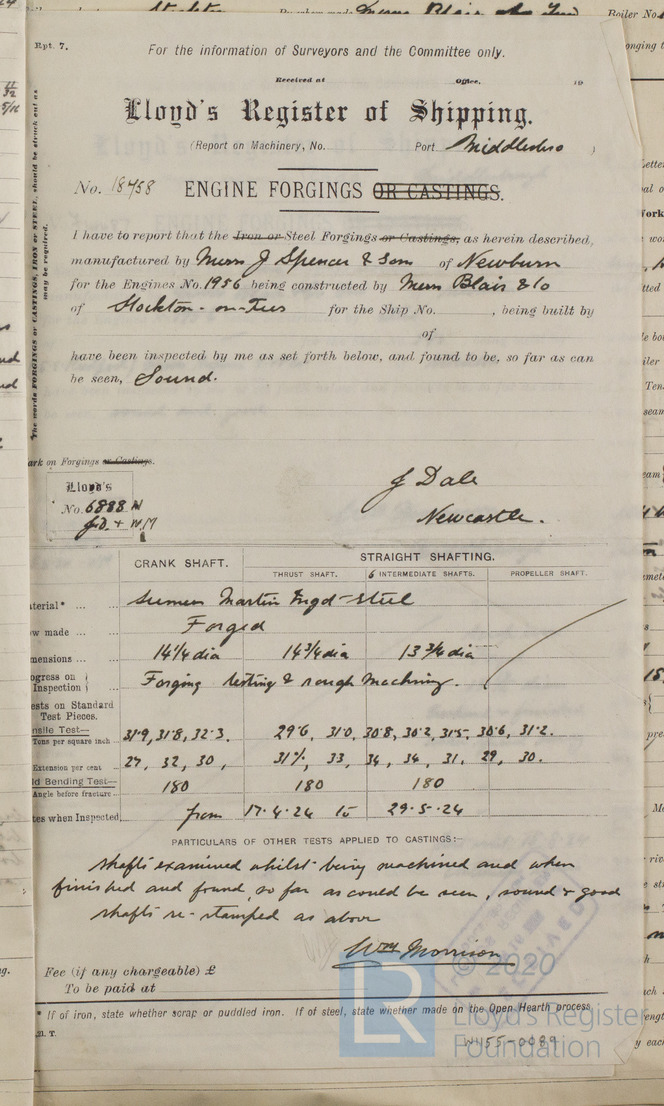 Rpt. 7.
For the information of Surveyors and the Committee only.
Received at Office, 19
Lloyd's Register of Shipping.
(Report on Machinery, No. Port Middlesbro )
No. 18458 ENGINE FORGINGS OR CASTINGS.
The words FORGINGS or CASTINGS, IRON or STEEL, should be struck out as
may be required.
I have to report that the Iron or Steel Forgings or Castings, as herein described,
manufactured by Messrs J Spencer & Sons of Newburn
for the Engines No. 1956 being constructed by Messrs Blair & Co
of Stockton-on-Tees for the Ship No. , being built by
of
have been inspected by me as set forth below, and found to be, so far as can
be seen, Sound.
ark on Forgings or Castings.
Lloyd's
No. 6888 N
J.D. + W.M
J Dale
Newcastle.
CRANK SHAFT. STRAIGHT SHAFTING.
THRUST SHAFT. 6 INTERMEDIATE SHAFTS. PROPELLER SHAFT.
terial* ... Siemen Martin Ingot Steel
ow made ... Forged
mensions ... 14 1/4 dia 14 3/4 dia 13 3/4 dia
ogress on
Inspection Forging testing & rough Machining.
ests on Standard
Test Pieces.
nsile Test—
Tons per square inch 31.9, 31.8, 32.3. 29.6, 31.0, 30.8, 30.2, 31.5, 30.6, 31.2.
Extension per cent 27, 32, 30, 31%, 33, 34, 34, 31, 29, 30.
ld Bending Test—
Angle before fracture 180 180 180
tes when Inspected from 17.4.24 to 29.5.24
PARTICULARS OF OTHER TESTS APPLIED TO CASTINGS:—
Shafts examined whilst being machined and when
finished and found, so far as could be seen, sound & good
Shafts re-stamped as above
Wm Morrison
Fee (if any chargeable) £
To be paid at
* If of iron, state whether scrap or puddled iron. If of steel, state whether made on the Open Hearth process.
LR
© 2020
Lloyd's Register
Foundation
W455-0089